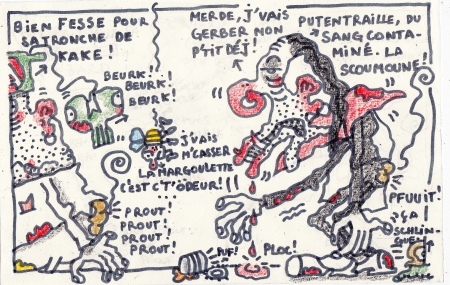 BIEN FESSE POUR
SA TRONCHE DE
KAKE!
BEURK!
BEURK!
BEURK!
MERDE, J'VAIS
GERBER MON
P'TIT DÉJ!
PUTENTRAILLE, DU
SANG CONTA-
MINÉ. LA
SCOUMOUNE!
J'VAIS
M'CASSER
LA MARGOULETTE
C'EST C'T'ODEUR!!!
PROUT!
PROUT!
PROUT!
PROUT!
PUF!
PLOC!
PFUUIT!
ÇA
SCHLIN-
GUE!